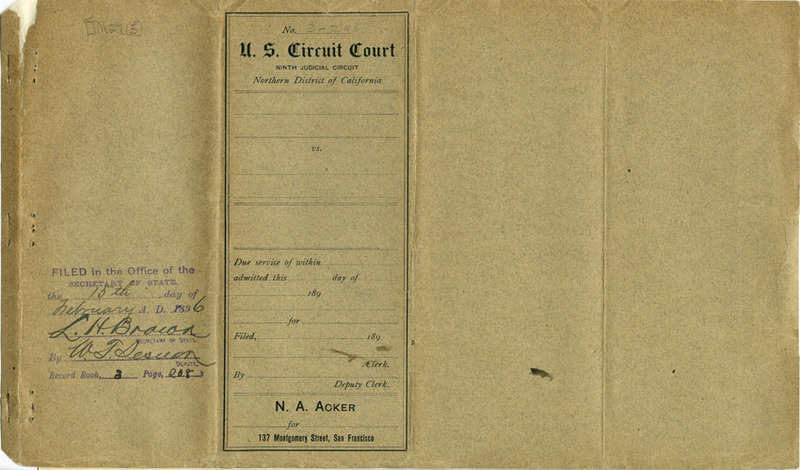 FILED in the Office of the
SECRETARY OF STATE,
the 15th day of
February A. D. 1896
L. H. Brown
SECRETARY OF STATE.
By W. T. Sesnon
DEPUTY.
Record Book, 3 Page, 208
No.
U. S. Circuit Court
NINTH JUDICIAL CIRCUIT
Northern District of California
vs.
Due service of within
admitted this day of
189
for
Filed, 189
Clerk.
By
Deputy Clerk.
N. A. ACKER
for
137 Montgomery Street, San Francisco